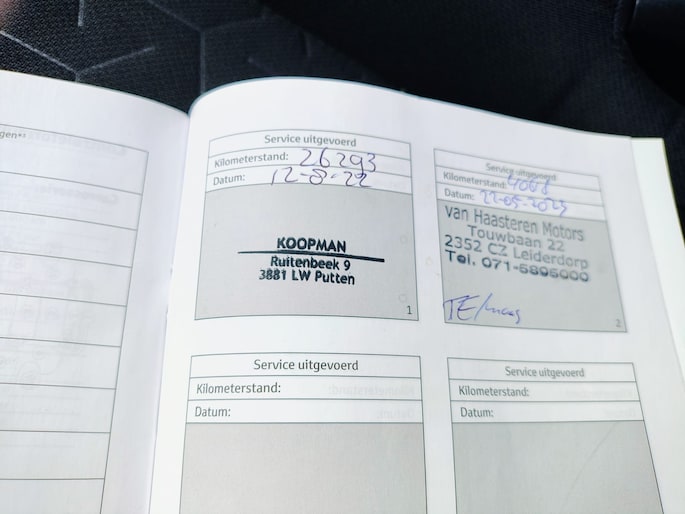 gen*²
Service uitgevoerd
Kilometerstand: 26293
Datum: 12-8-22
KOOPMAN
Ruitenbeek 9
3881 LW Putten
1
Service uitgevoerd
Kilometerstand:
Datum: 22-05-2023
van Haasteren Motors
Touwbaan 22
2352 CZ Leiderdorp
Tel. 071-5895000
2
Service uitgevoerd
Kilometerstand:
Datum:
Service uitgevoerd
Kilometerstand:
Datum: